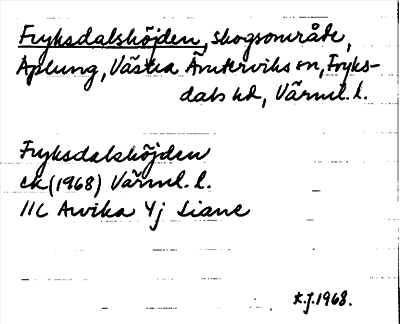 Fryksdalshöjden, skogsområde,
Aplung, Västra Ämterviks sn, Fryks-
dals hd, Värml. l.
Fryksdalshöjden
ek (1968) Värml. l.
11C Arvika 4j
K.J. 1968.